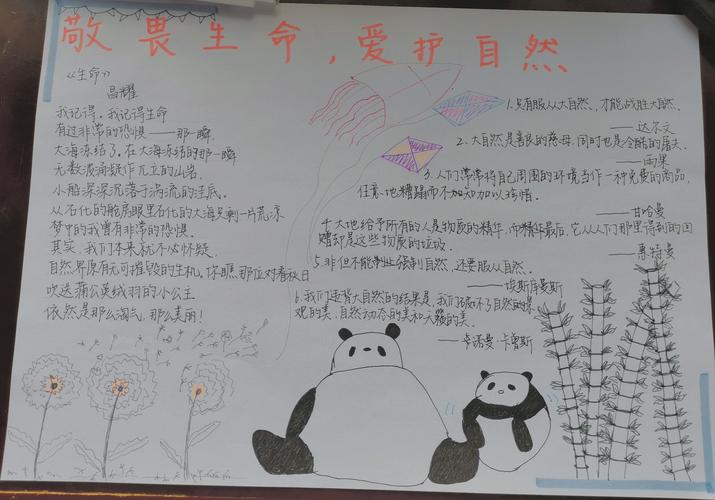 敬畏生命，爱护自然
《生命》
昌耀
我记得。我记得生命
有过非常的恐惧——那一瞬，
大海冻结了。在大海冻结的那一瞬
无数波涌凝作兀立的山岩，
小船深深沉落于涡流的洼底。
从石化的舱房眼里石化的大海只剩一片荒凉
梦中的我曾有非常的恐惧。
其实，我们本来就不必怀疑，
自然界原有无可摧毁的生机，你瞧那位对着秋日
吹送蒲公英绒羽的小公主
依然是那么淘气，那么美丽！
1.只有服从大自然，才能战胜大自然。
——达尔文
2、大自然是善良的慈母，同时也是冷酷的屠夫。
——雨果
3、人们常常将自己周围的环境当作一种免费的商品，
任意地糟蹋而不加以珍惜。
——甘哈曼
4、大地给予所有的人是物质的精华，而最后，它从人们那里得到的回
赠却是这些物质的垃圾。
——惠特曼
5、非但不能强制自然，还要服从自然。
——埃斯库曼斯
6、我们违背大自然的结果是，我们破坏了自然的景
观的美，自然动态的美和天籁的美。
——诺曼·卡曾斯